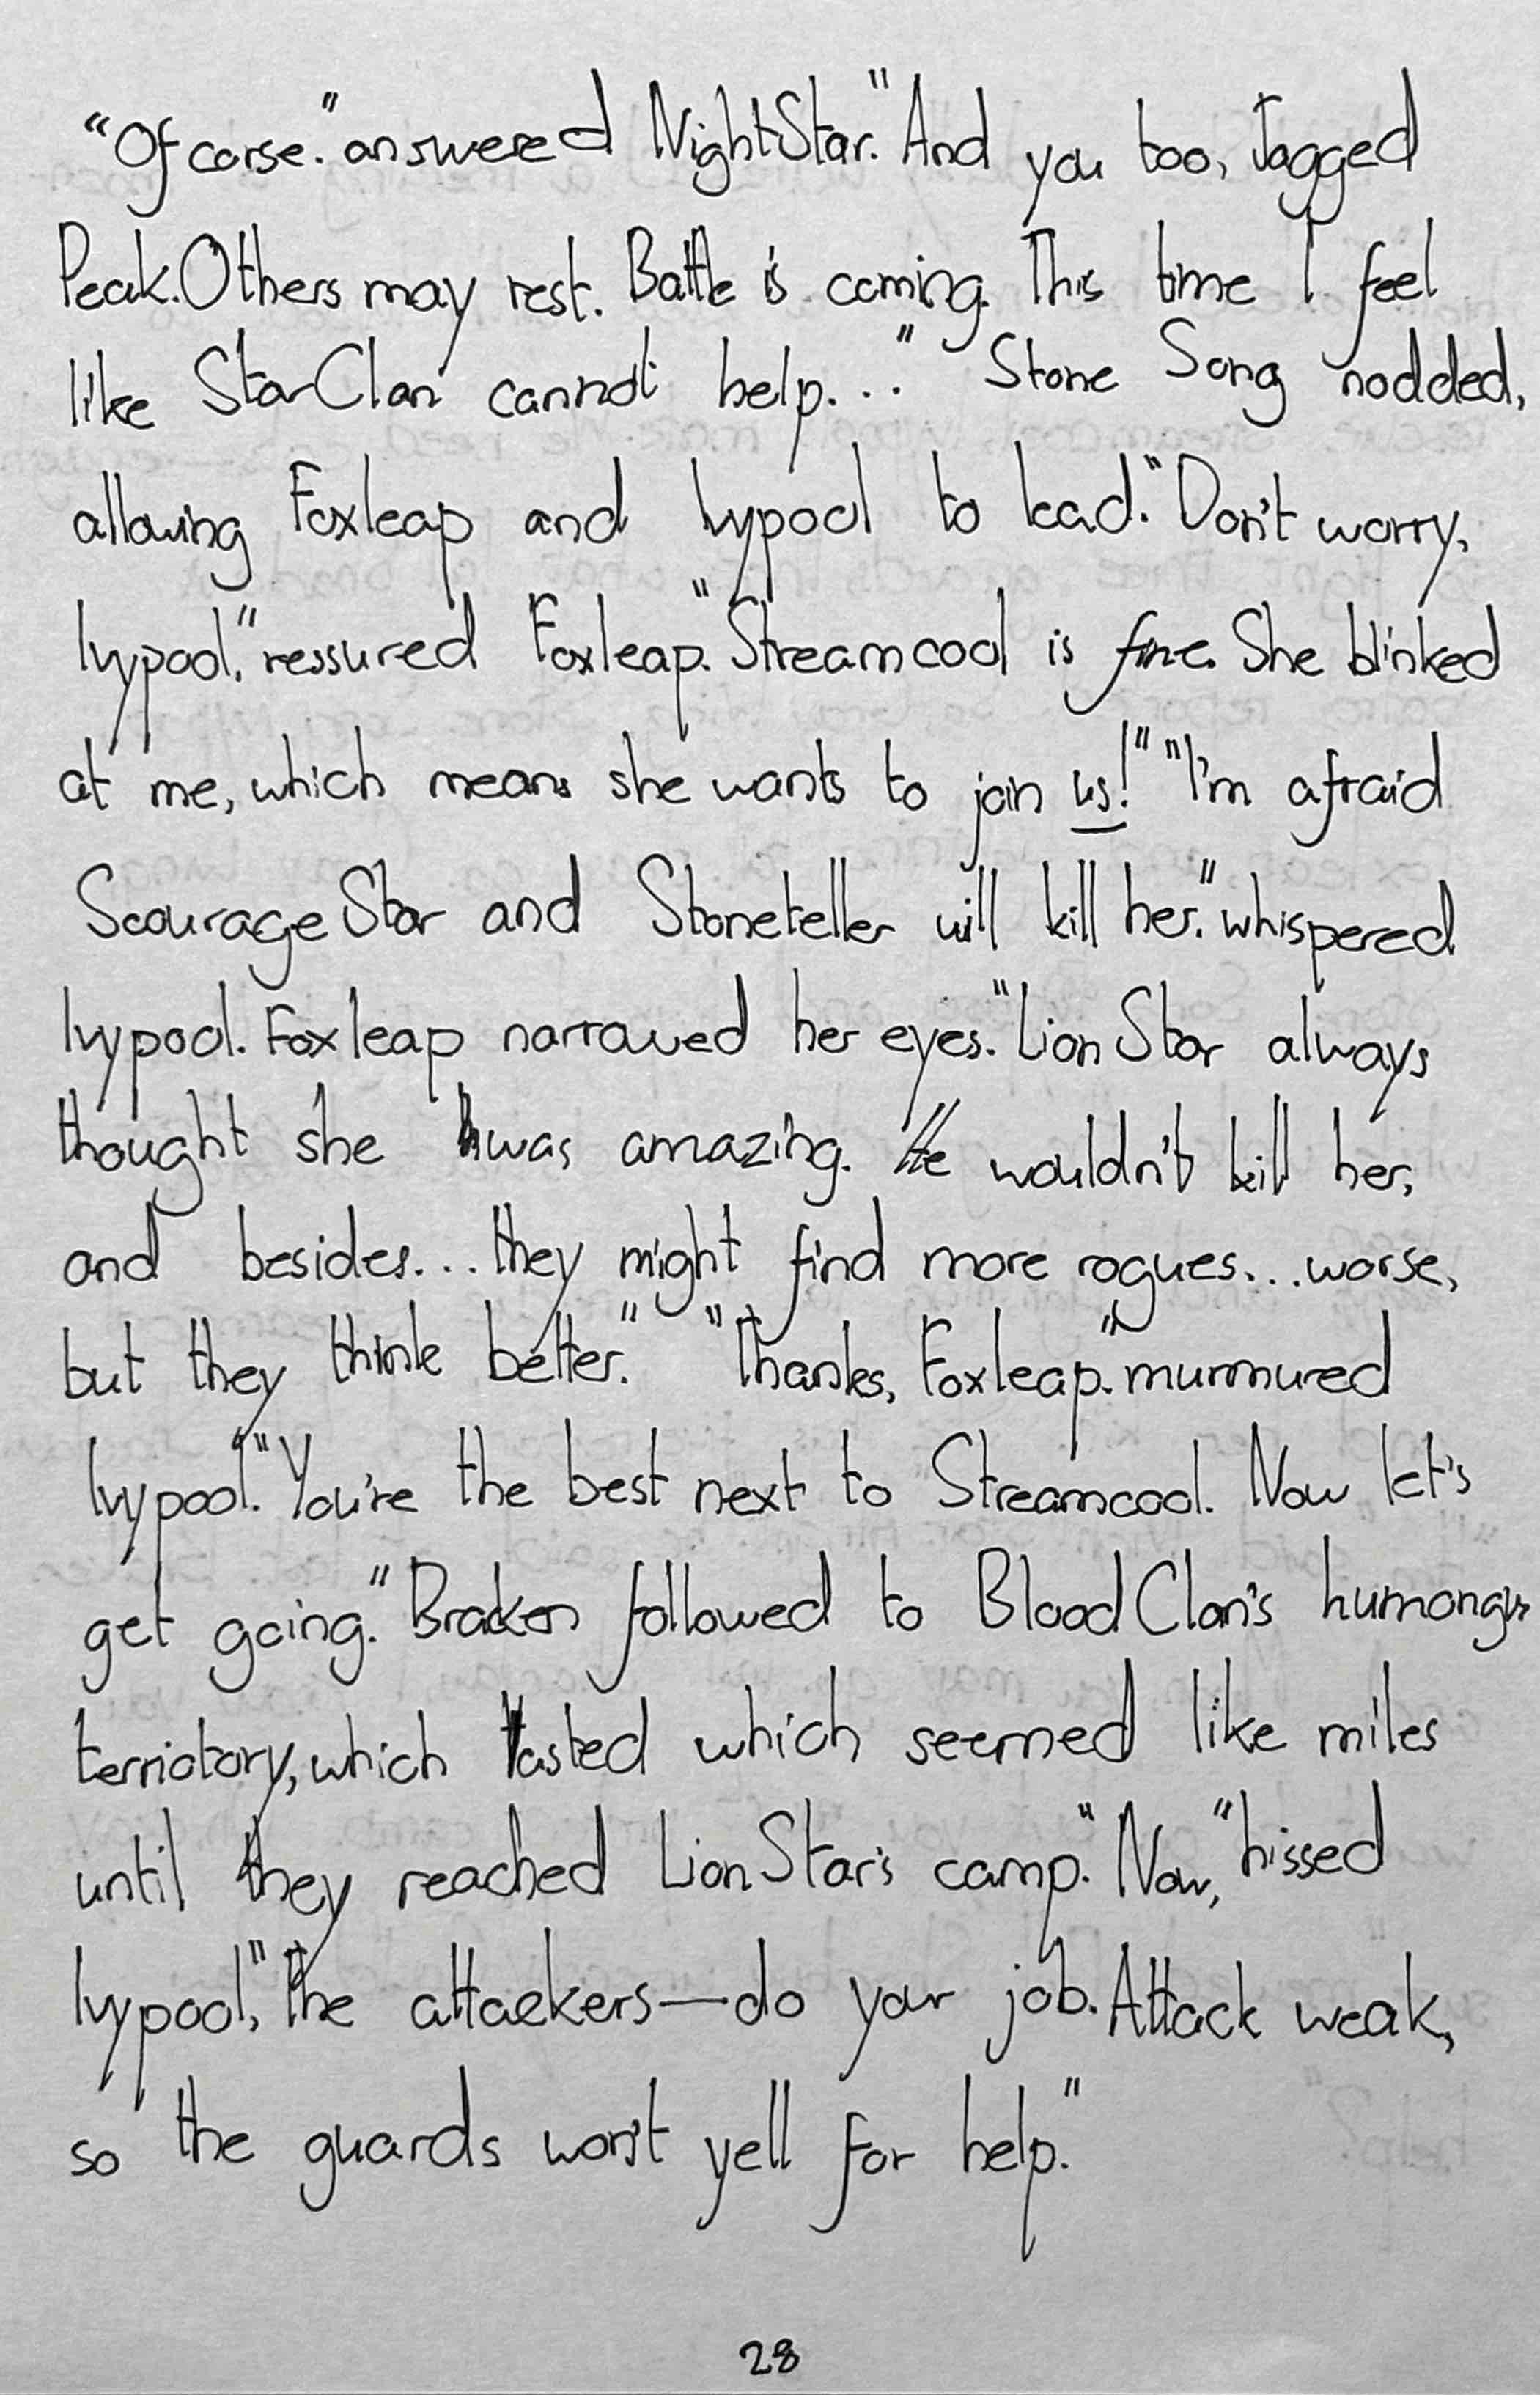 "Of corse." answered NightStar. "And you too, Jagged
Peak. Others may rest. Battle is coming. This time I feel
like StarClan cannot help..." Stone Song nodded,
allowing Foxleap and Ivypool to lead. "Don't worry,
Ivypool," ressured Foxleap. "Streamcool is fine. She blinked
at me, which means she wants to join us!" "I'm afraid
ScourageStar and Stoneteller will kill her." whispered
Ivypool. Foxleap narrowed her eyes. "LionStar always
thought she was amazing. He wouldn't kill her,
and besides... they might find more rogues... worse,
but they think better." "Thanks, Foxleap." murmured
Ivypool. "You're the best next to Streamcool. Now let's
get going." Bracken followed to BloodClan's humongus
terrictory, which lasted which seemed like miles
until they reached LionStar's camp. "Now," hissed
Ivypool, "the attackers—do your job. Attack weak,
so the guards won't yell for help."
28